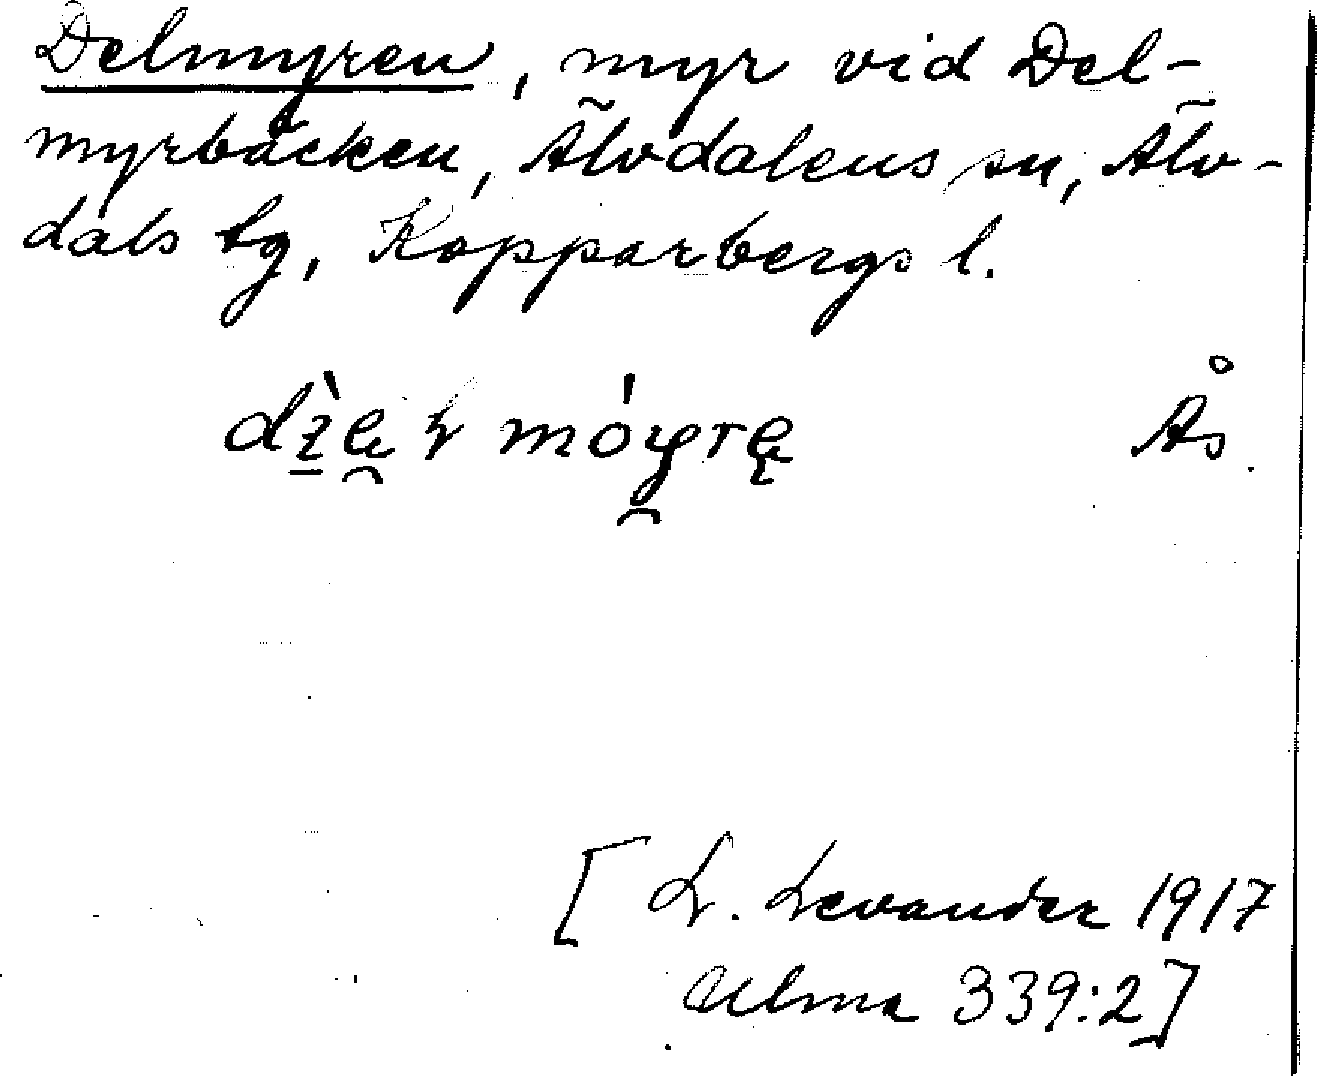 Delmyren, myr vid Del-
myrbäcken, Älvdalens sn, Älv-
dals tg, Kopparbergs l.
Ås.
[L. Levander 1917
Ulma 339:2]